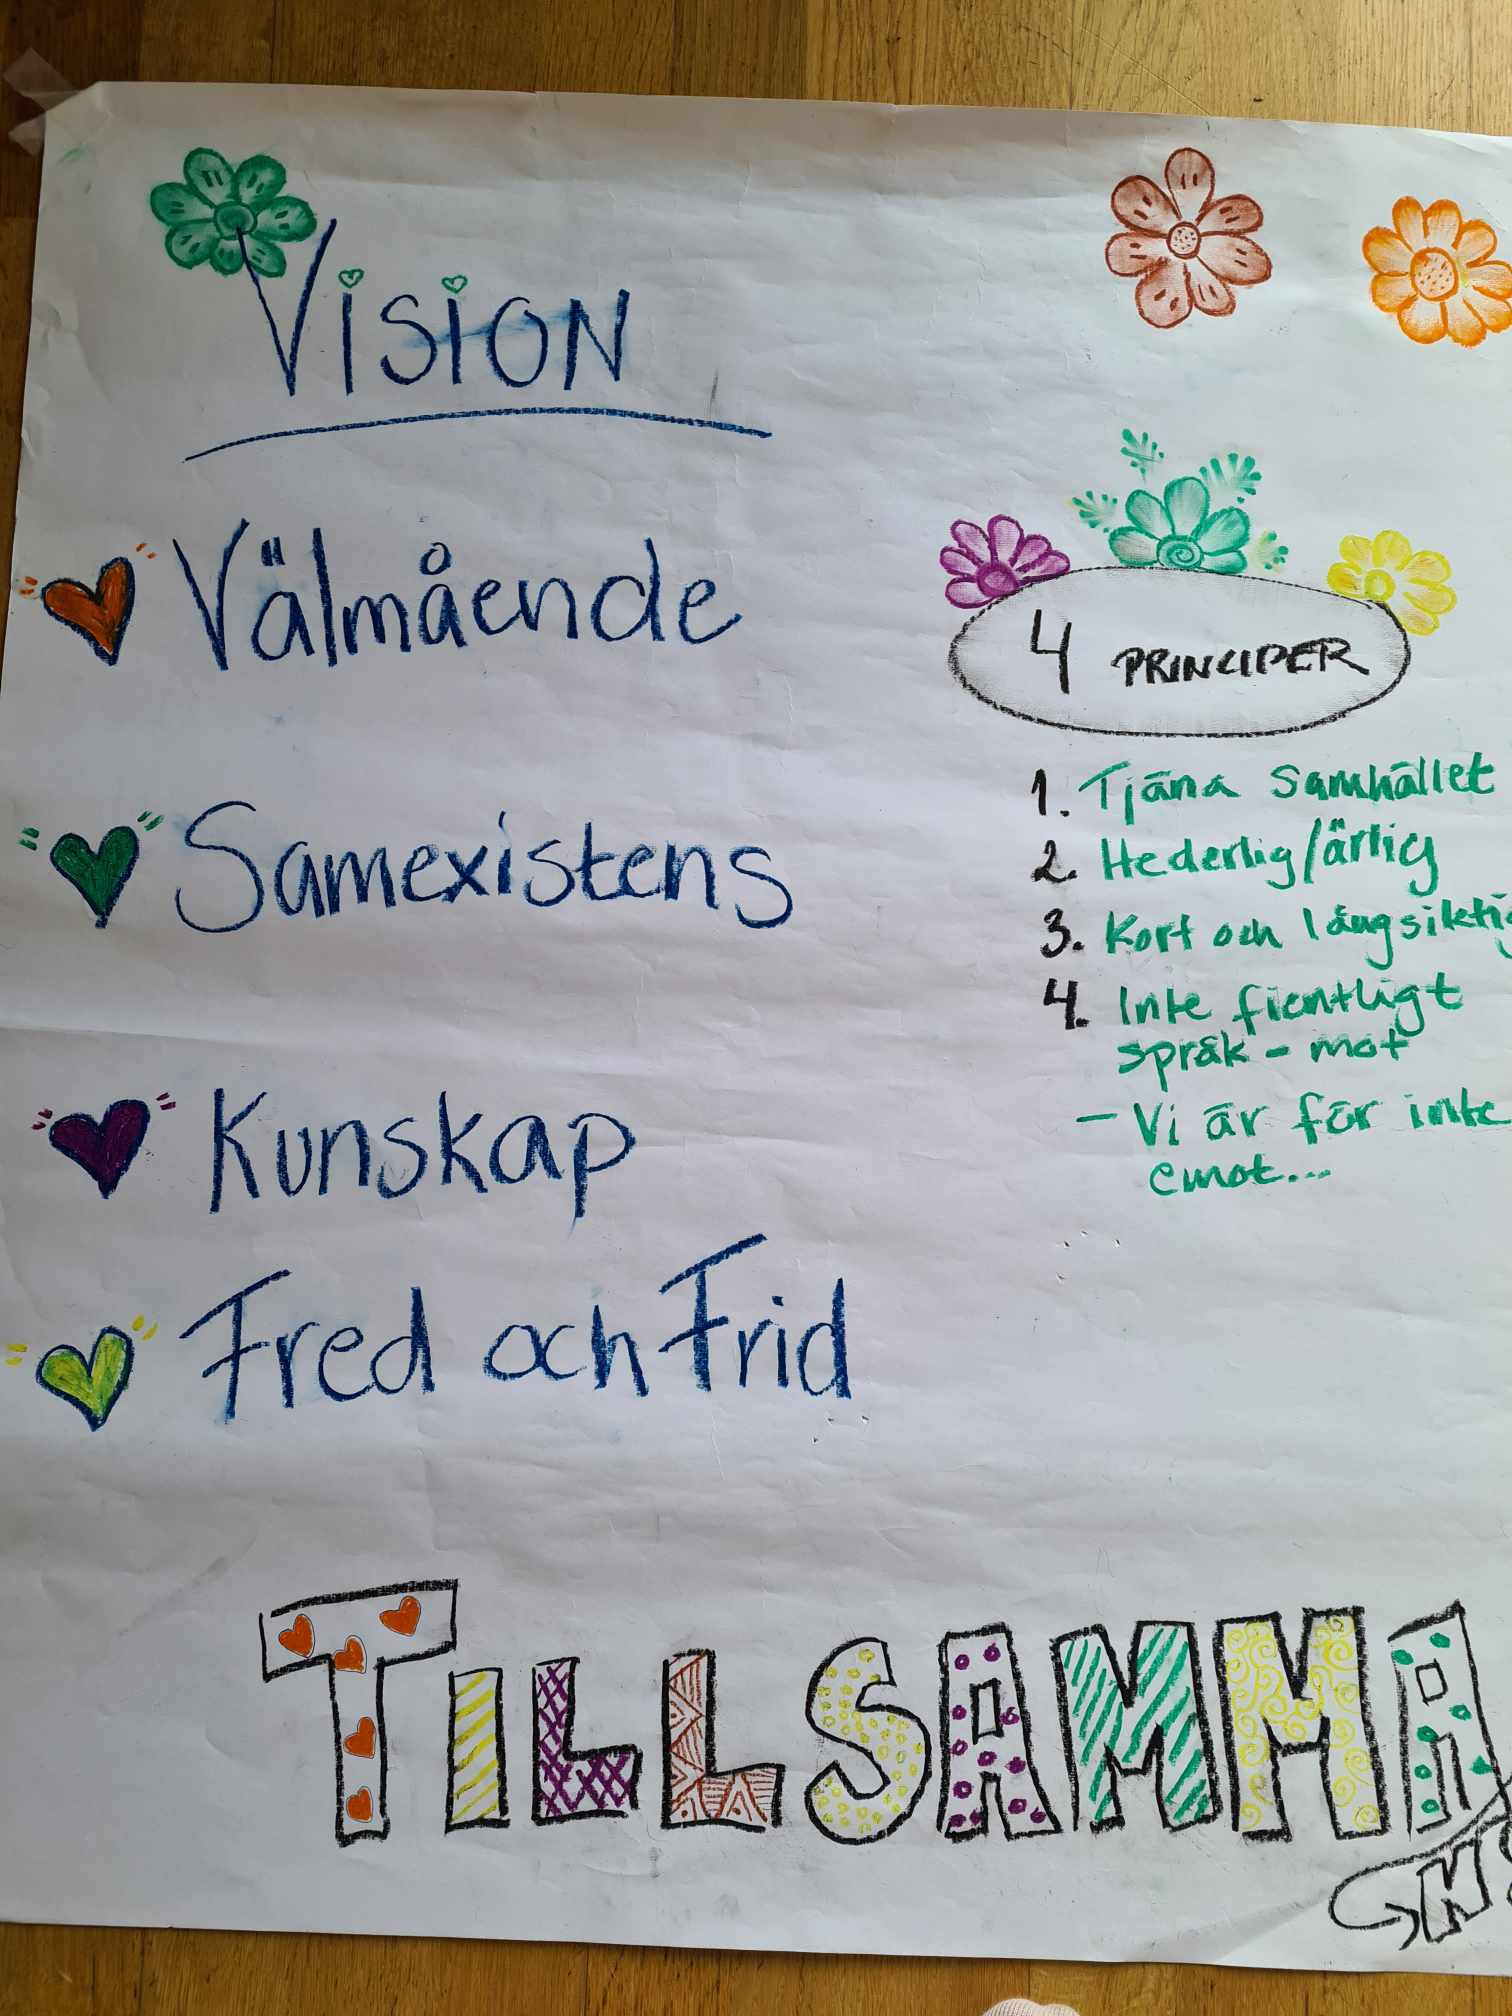 Vision
Välmående
Samexistens
Kunskap
Fred och Frid
4 PRINCIPER
1. Tjäna samhället
2. Hederlig/ärlig
3. Kort och långsiktig
4. Inte fientligt
språk - mot
- Vi är för inte
emot...
TILLSAMMA
NS